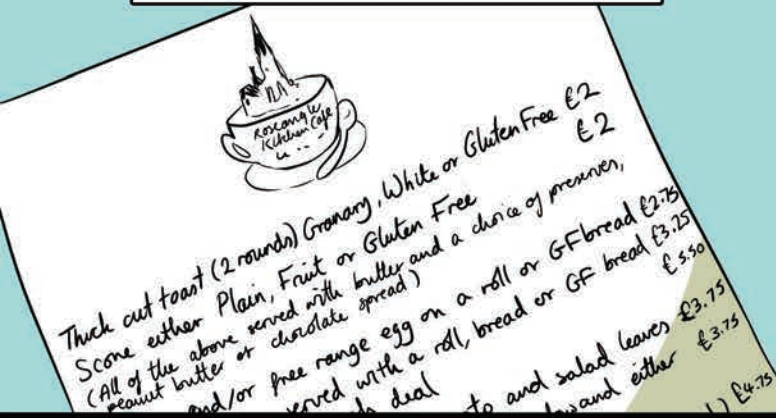 Roseangle
Kitchen Cafe
Thick cut toast (2 rounds) Granary, White or Gluten Free £2
Scone either Plain, Fruit or Gluten Free £2
(All of the above served with butter and a choice of preserves,
peanut butter or chocolate spread)
and/or free range egg on a roll or GF bread £2.75
served with a roll, bread or GF bread £3.25
deal £5.50
and salad leaves £3.75
and either £3.75
£4.75